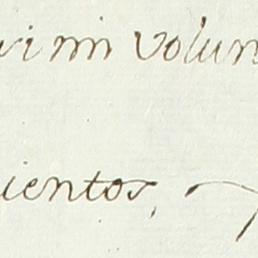 mi volun
ientos,